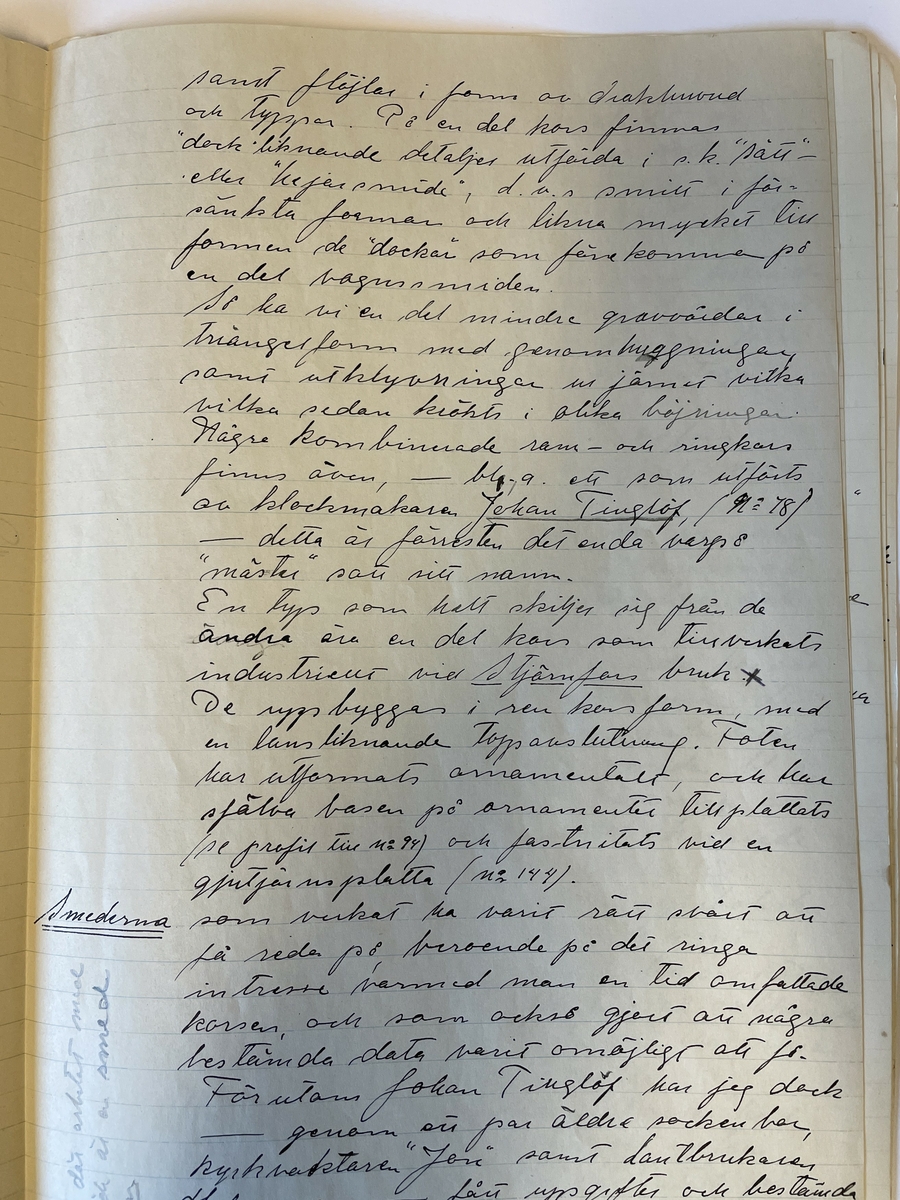 samt flöjlar i form av drakhuvud
och tuppar. På en del kors finnas
"dock"liknande detaljer utförda i s.k. "sätt"-
eller "hejarsmide", d.v.s smitt i för-
sänkta formar och likna mycket till
formen de "dockor" som förekomma på
en del vagnssmiden.
Så ha vi en del mindre gravvårdar i
triangelform med genomhuggningar,
samt utklyvningar ur järnet vilka
vilka sedan krökts i olika böjningar.
Några kombinerade ram- och ringkors
finns även, — bl.a. ett som utförts
av klockmakaren Johan Tinglöf, (No 78)
— detta är förresten det enda varpå
"mäster" satt sitt namn.
En typ som helt skiljer sig från de
andra äro en del kors som tillverkats
industriellt vid Stjärnfors bruk x
De uppbyggas i ren korsform, med
en lansliknande toppavslutning. Foten
har utformats ornamentalt, och har
själva basen på ornamentet tillplattats
(se profil till no 94) och fastnitats vid en
gjutjärnsplatta (no 144).
Smederna som verkat ha varit rätt svårt att
få reda på, beroende på det ringa
intresse varmed man en tid omfattade
korsen, och som också gjort att några
bestämda data varit omöjligt att få.
Förutom Johan Tinglöf har jag dock
— genom ett par äldre sockenbor,
kyrkvaktaren "Jon" samt lantbrukaren
— fått uppgifter och bestämda
där arbetet med
är en smed